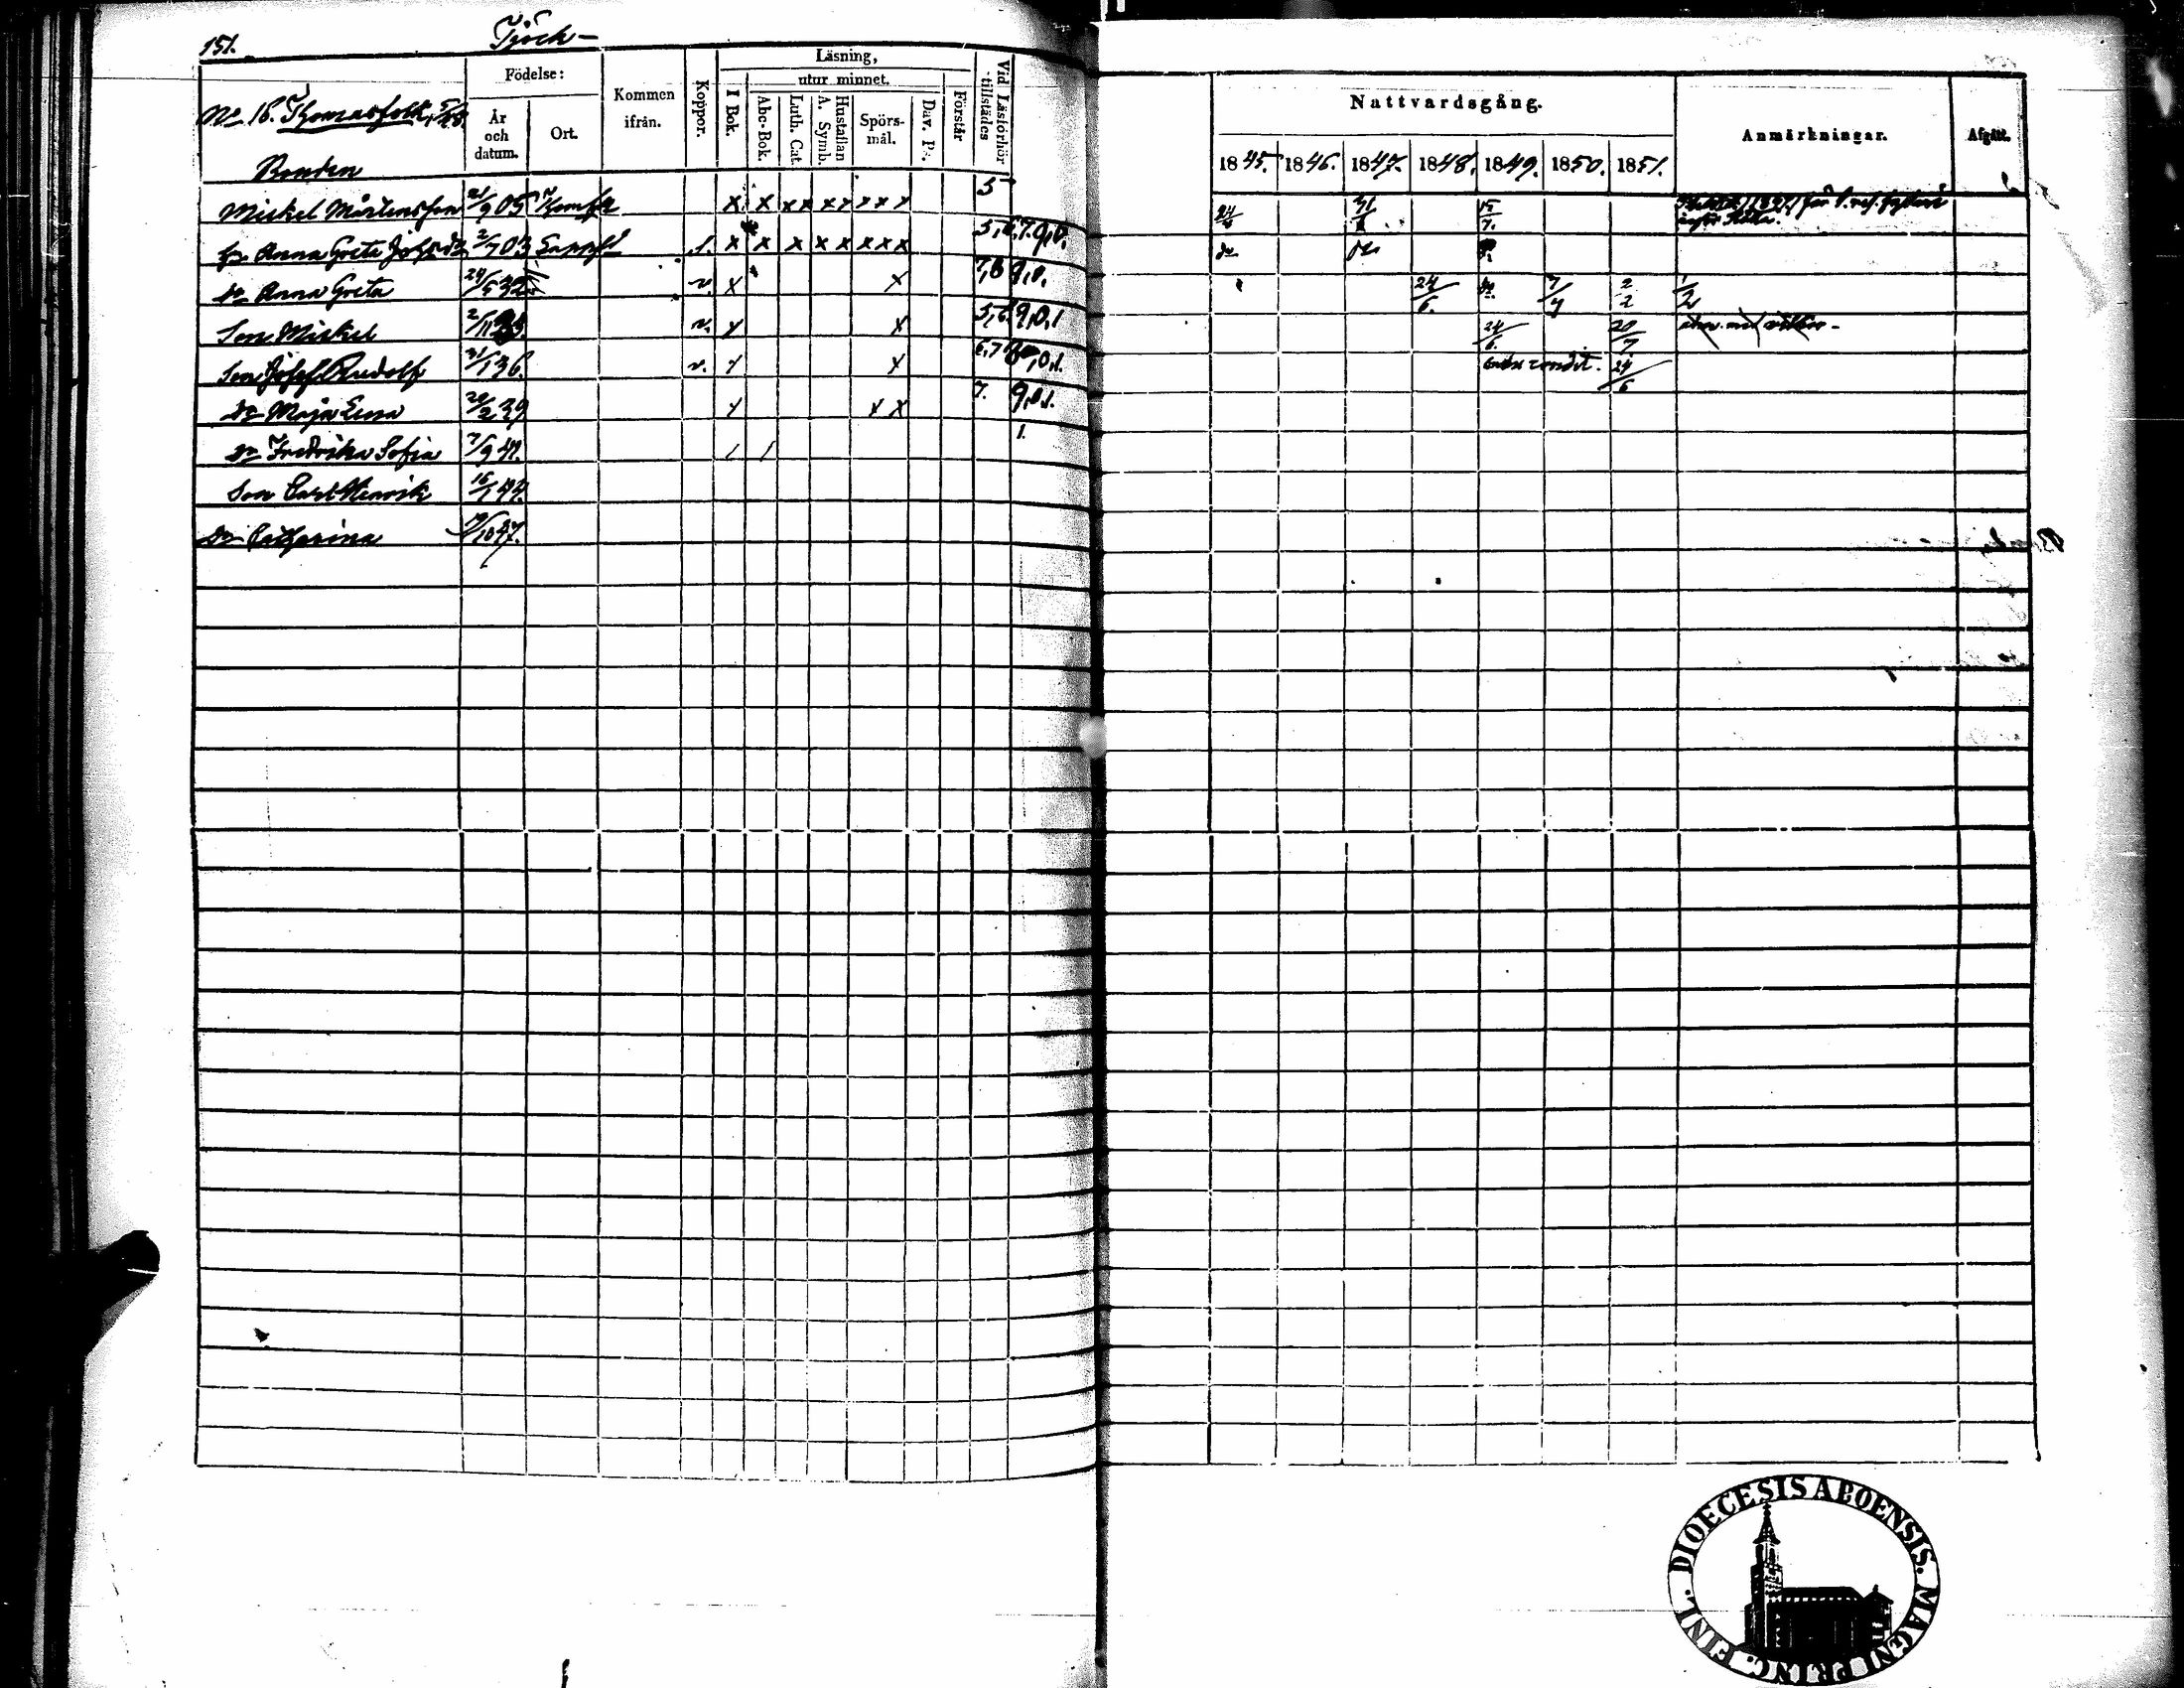 151. Tjöck-
No 16. Thomasfolk, 5/48.
Födelse:
År och datum.
Ort.
Kommen ifrån.
Koppor.
Läsning,
utur minnet.
I Bok.
Abc-Bok.
Luth. Cat.
Hustaflan A. Symb.
Spörs-mål.
Dav. Ps.
Förstår
Vid Läsförhör tillstädes
Nattvardsgång.
1845. 1846. 1847. 1848. 1849. 1850. 1851.
Anmärkningar.
Afgått.
Bonden
Mickel Mårtensson 21/9 05 x x xx xx xxx 5 24/6 15/7.
h. Anna Greta Josefsdr 2/7 03 Lappfj s. x x x x x x x x 5,6,7.9,0. do do
dr Anna Greta 24/5 32 v. x x 7,8 9,0. 24/6. do 7/4 2/2 1/2
Son Mickel 2/11 v. x x 5,6.9,0,1 24/6. 20/7
Son Josef Rudolf 31/1 36. v. x x 6,7 0,1. condit. 24/6
dr Maja Lena 20/2 39 x x x 7. 9,0,1.
dr Fredrika Sofia 7/9 41. / / 1.
Son Carl Henrik 16/1 44.
dr Catharina 19/10 47.
DIOECESIS ABOENSIS. MAGNI PRINC. FINL.